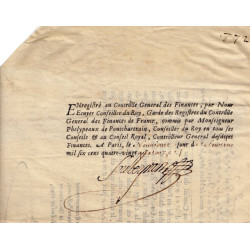 177
Enregistré au Contrôle General des Finances, par Nous
Ecuyer Conseiller du Roy, Garde des Registres du Contrôlle
General des Finances de France, commis par Monseigneur
Phelypeaux de Pontchartrain, Conseiller du Roy en tous ses
Conseils & au Conseil Royal, Contrôlleur General desdites
Finances. A Paris, le jour de
mil six cens quatre-vingt